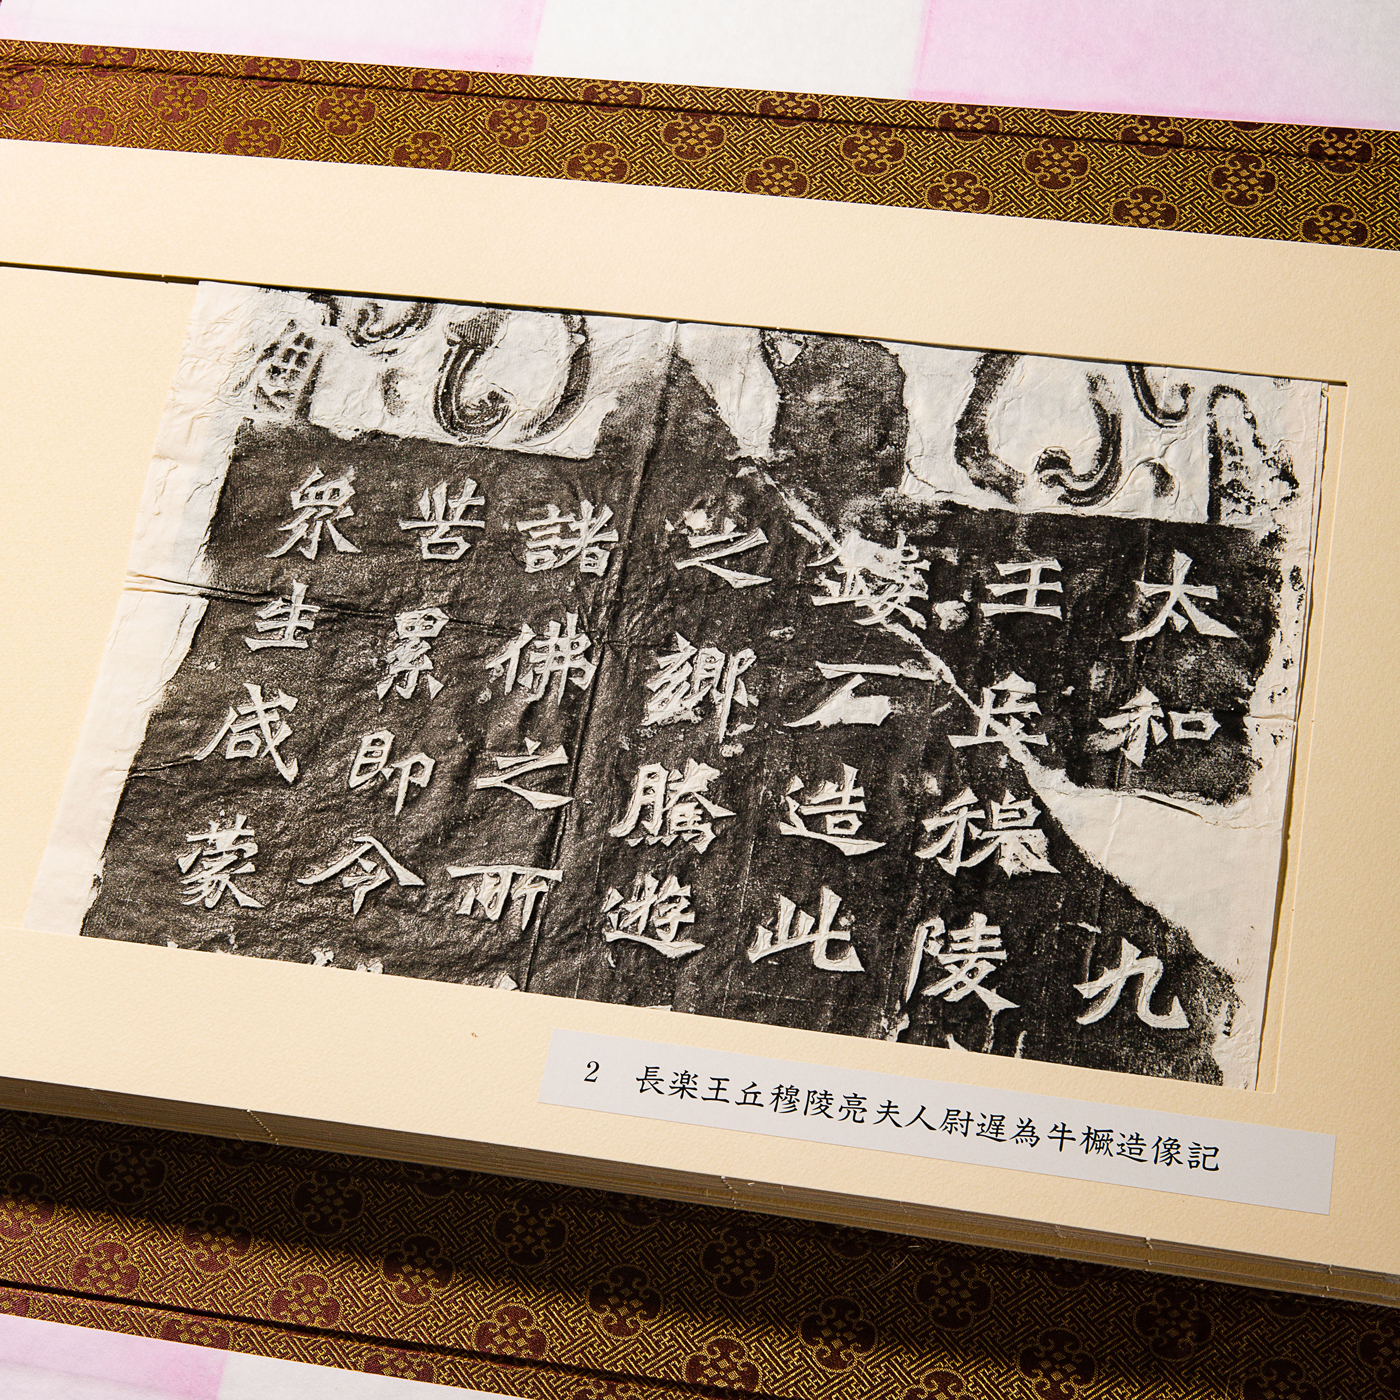 太和九
王丘穆陵
鏤石造此
之鄉騰遊
諸佛之所
苦累即令
眾生咸蒙
2 長楽王丘穆陵亮夫人尉遲為牛橛造像記